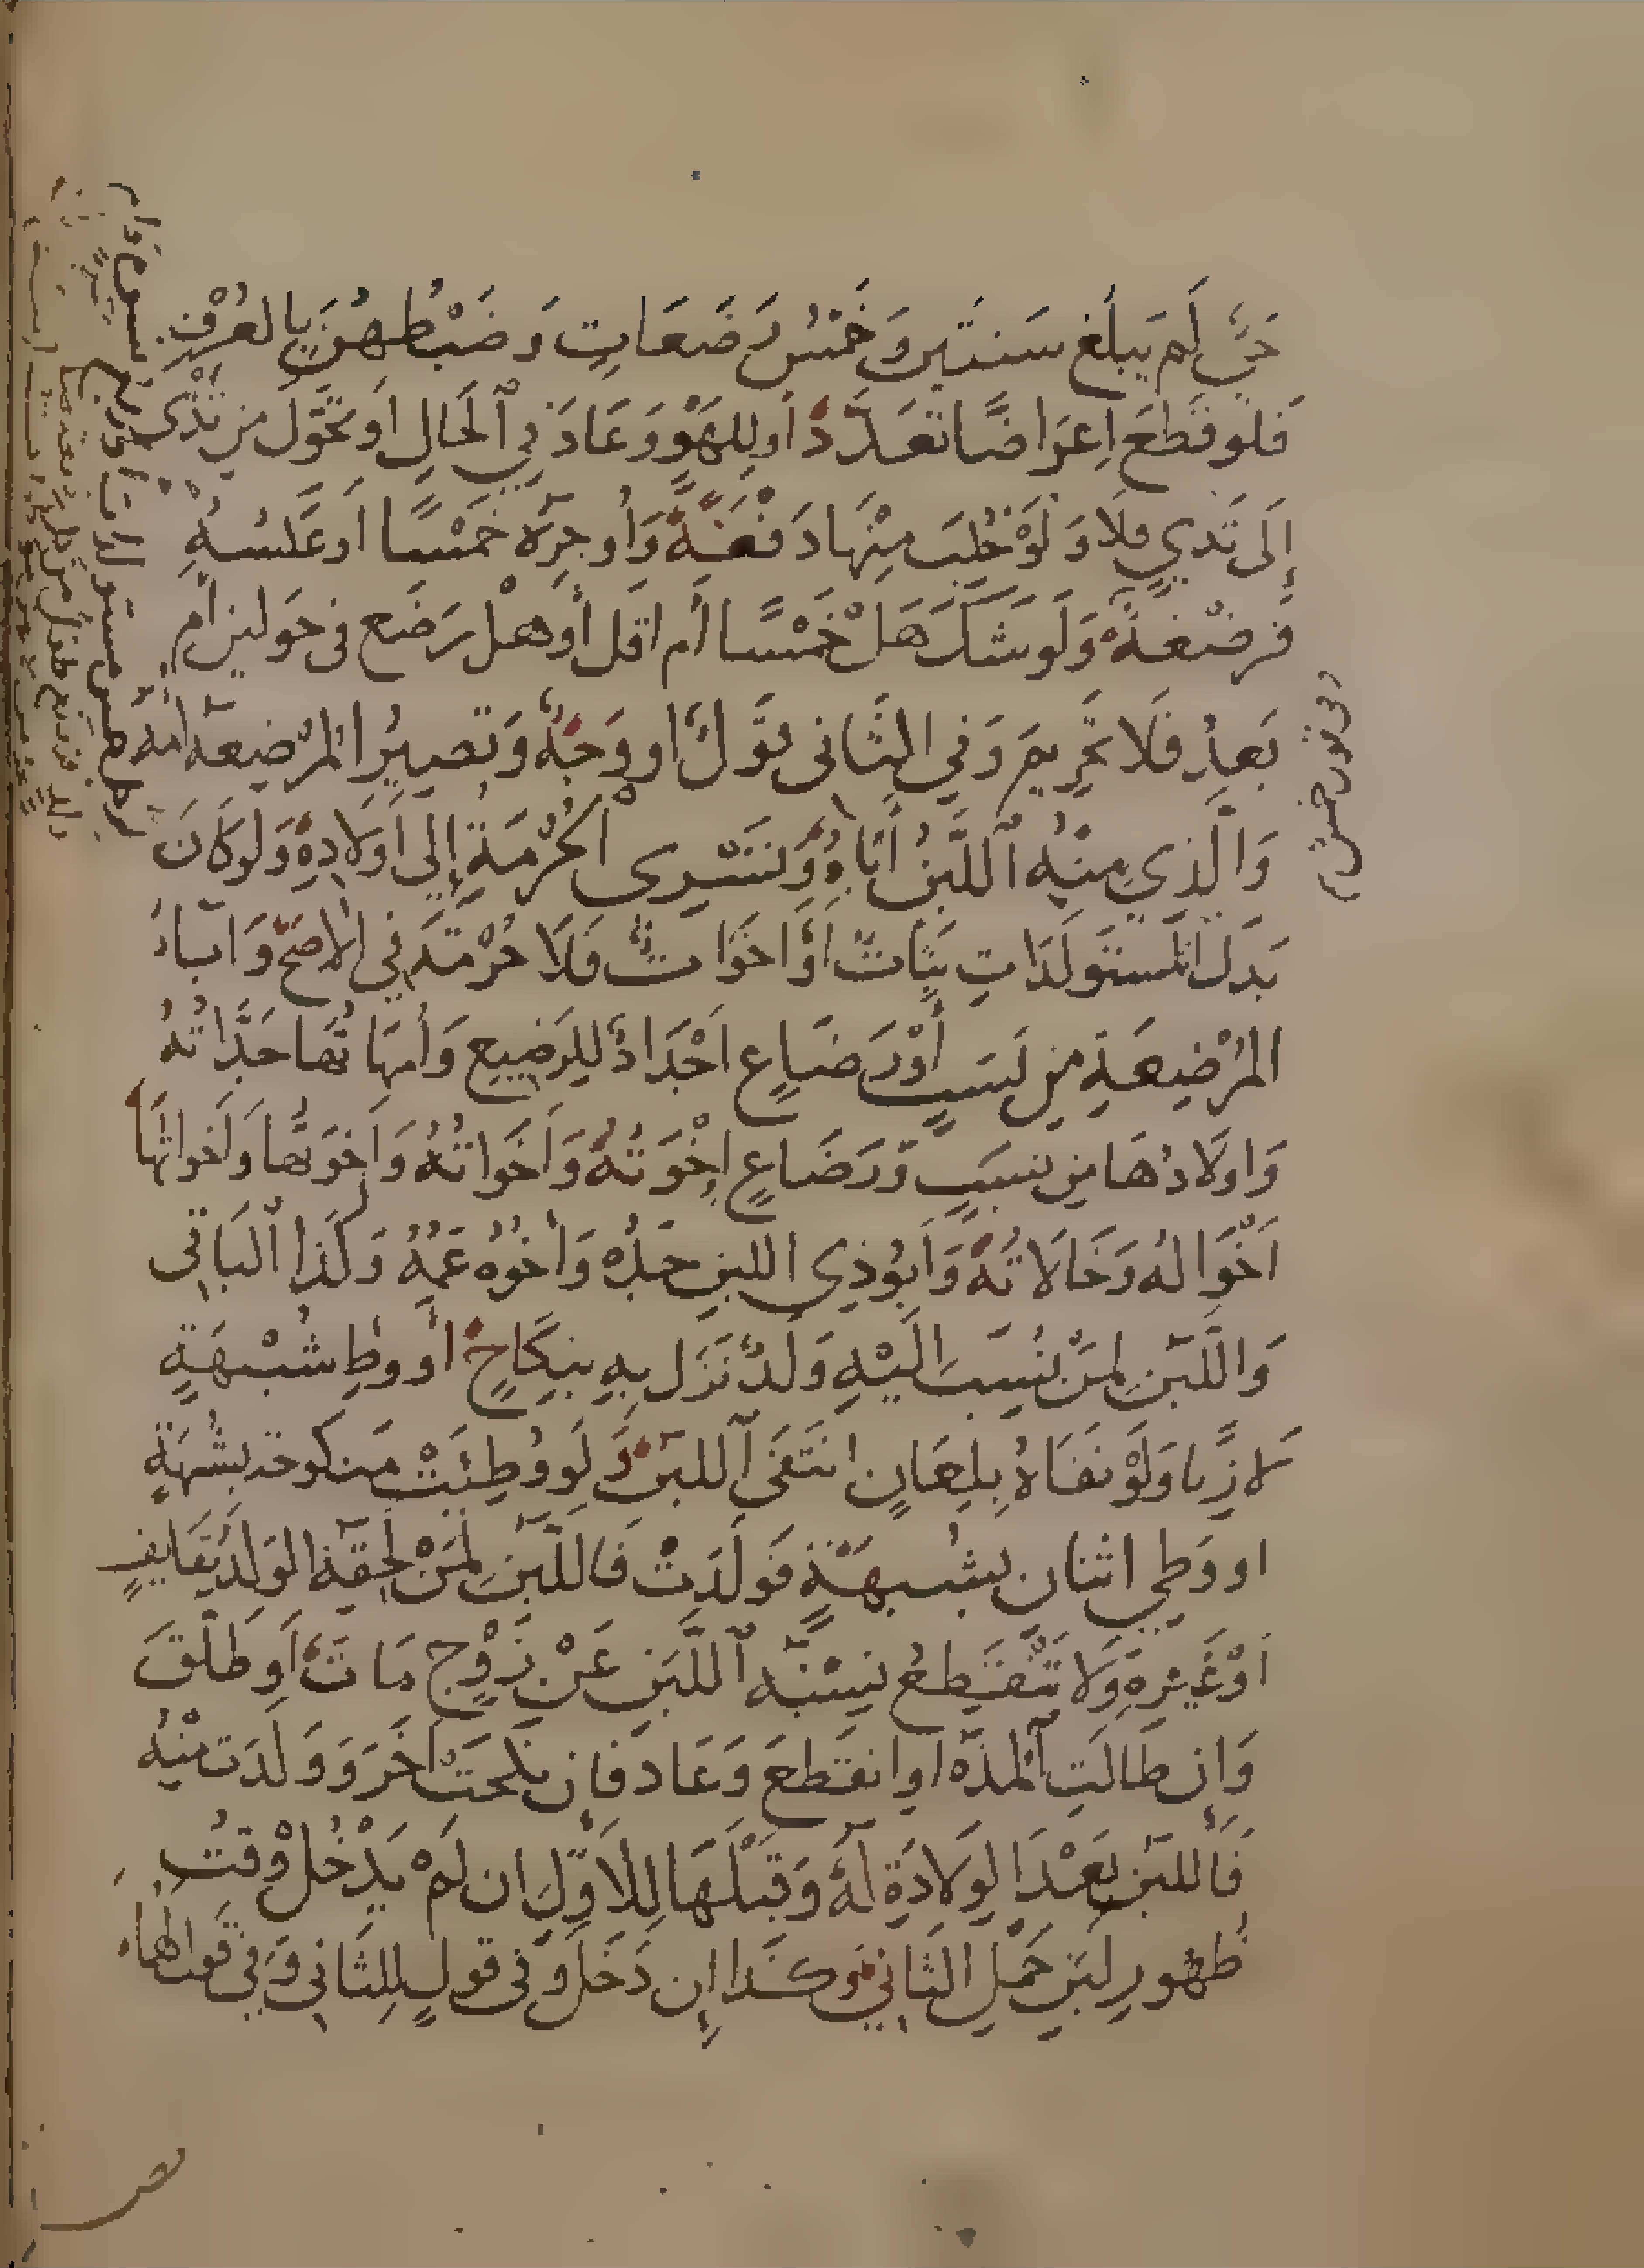 حَيٍّ لَم يَبلُغ سَنتَينِ وَخَمْسُ رَضَعَاتٍ وَضَبْطُهُنَّ بِالعُرْفِ
فَلَو قَطَعَ اِعرَاضًا تَعَدَّدَ أَو لِلَهْوٍ وَعَادَ فِي ٱلحَالِ اَو تَحَّوَلَ مِن ثَدْيٍ
إِلَى ثَديٍ فلَا وَلَوْ حُلِبَ مِنْهَا دَفْعَةً وَأُوجِرَهُ خَمْسًا اَو عَكْسُهُ
فَرضْعَةٌ وَلَو شَكَّ هَلْ خَمْسًا أَم اقل أَو هلْ رَضَع فى حَولين أَم
بَعدُ فَلَا تَحْرِيمَ وَفِي الثَّانى قَوْلٌ او وَجْهٌ وَتَصِيرُ المُرْضِعَه اُمَّه
وَالَّذِي مِنْهُ ٱللَّبَنُ أَبَاهُ وَتَسْرِى الحُرْمَةِ إِلَى اَوْلَادِهِ وَلَو كَانَ
بَدَلَ المُستَولَدَاتِ بَنَاتٌ اَوْ اَخَوَاتٌ فَلَا حُرْمَةَ فِي الاصَحّ وَآبَاءُ
المُرْضِعَةِ مِن نَسَبٍ أَوْ رَضَاعٍ اَجْدَادٌ لِلرَضِيعِ وَأُمهَاتُهَا جَدَّاتُهُ
وَاولَادُهَا مِن نسَبٍ وَرَضَاعٍ اِخْوَتُهُ وَاَخَوَاتُهُ وَاِخوَتُهَا وَاَخَواتُهَا
اَخْوَالُهُ وَخَالَاتُهُ وَاَبُو ذِى اللبَنِ جَدُّه وَأَخُوُه عَمُّهُ وَكَذَا ٱلبَاقى
وَاللَّبَن لِمَنْ نُسِبَ اِلَيْهِ وَلَدٌ نَزَل بِهِ بِنِكَاحٍ أَو وطِ شُبْهَةٍ
لَا زِنا وَلَوْ نَفَاهُ بِلِعَانٍ انتَفَى ٱللبَن وَلَو وُطِئَتْ مَنكُوحَه بشُبهَةٍ
او وَطِي اثنان بشُبهَةٍ فَوَلَدَتْ فَاللَّبَن لِمَنْ لَحِقَهُ الوَلدُ بِقَايفٍ
اَوْ غَيْرِهِ وَلَا تَنْقَطِعُ نِسْبَةُ ٱللَّبَنِ عَنْ زَوْجٍ مَاتَ اَو طَلَّقَ
وَاِن طَالَتِ ٱلمُدّه اَوِ انقَطعَ وَعَاد فَاِن نَكَحَتْ آخَرَ وَوَلَدَت مِنْهُ
فَاللبَن بَعْدَ الوِلَادَةِ لَهُ وَقَبْلَهَا لِلاَوَّلِ ان لَمْ يَدْخُلْ وَقْتُ
ظُهُورِ لَبَنِ حَمْلِ الثَانِي وَكَذا اِن دَخَلَ وَفى قَولٍ لِلثَانِي وَفى قَول لهُمَا